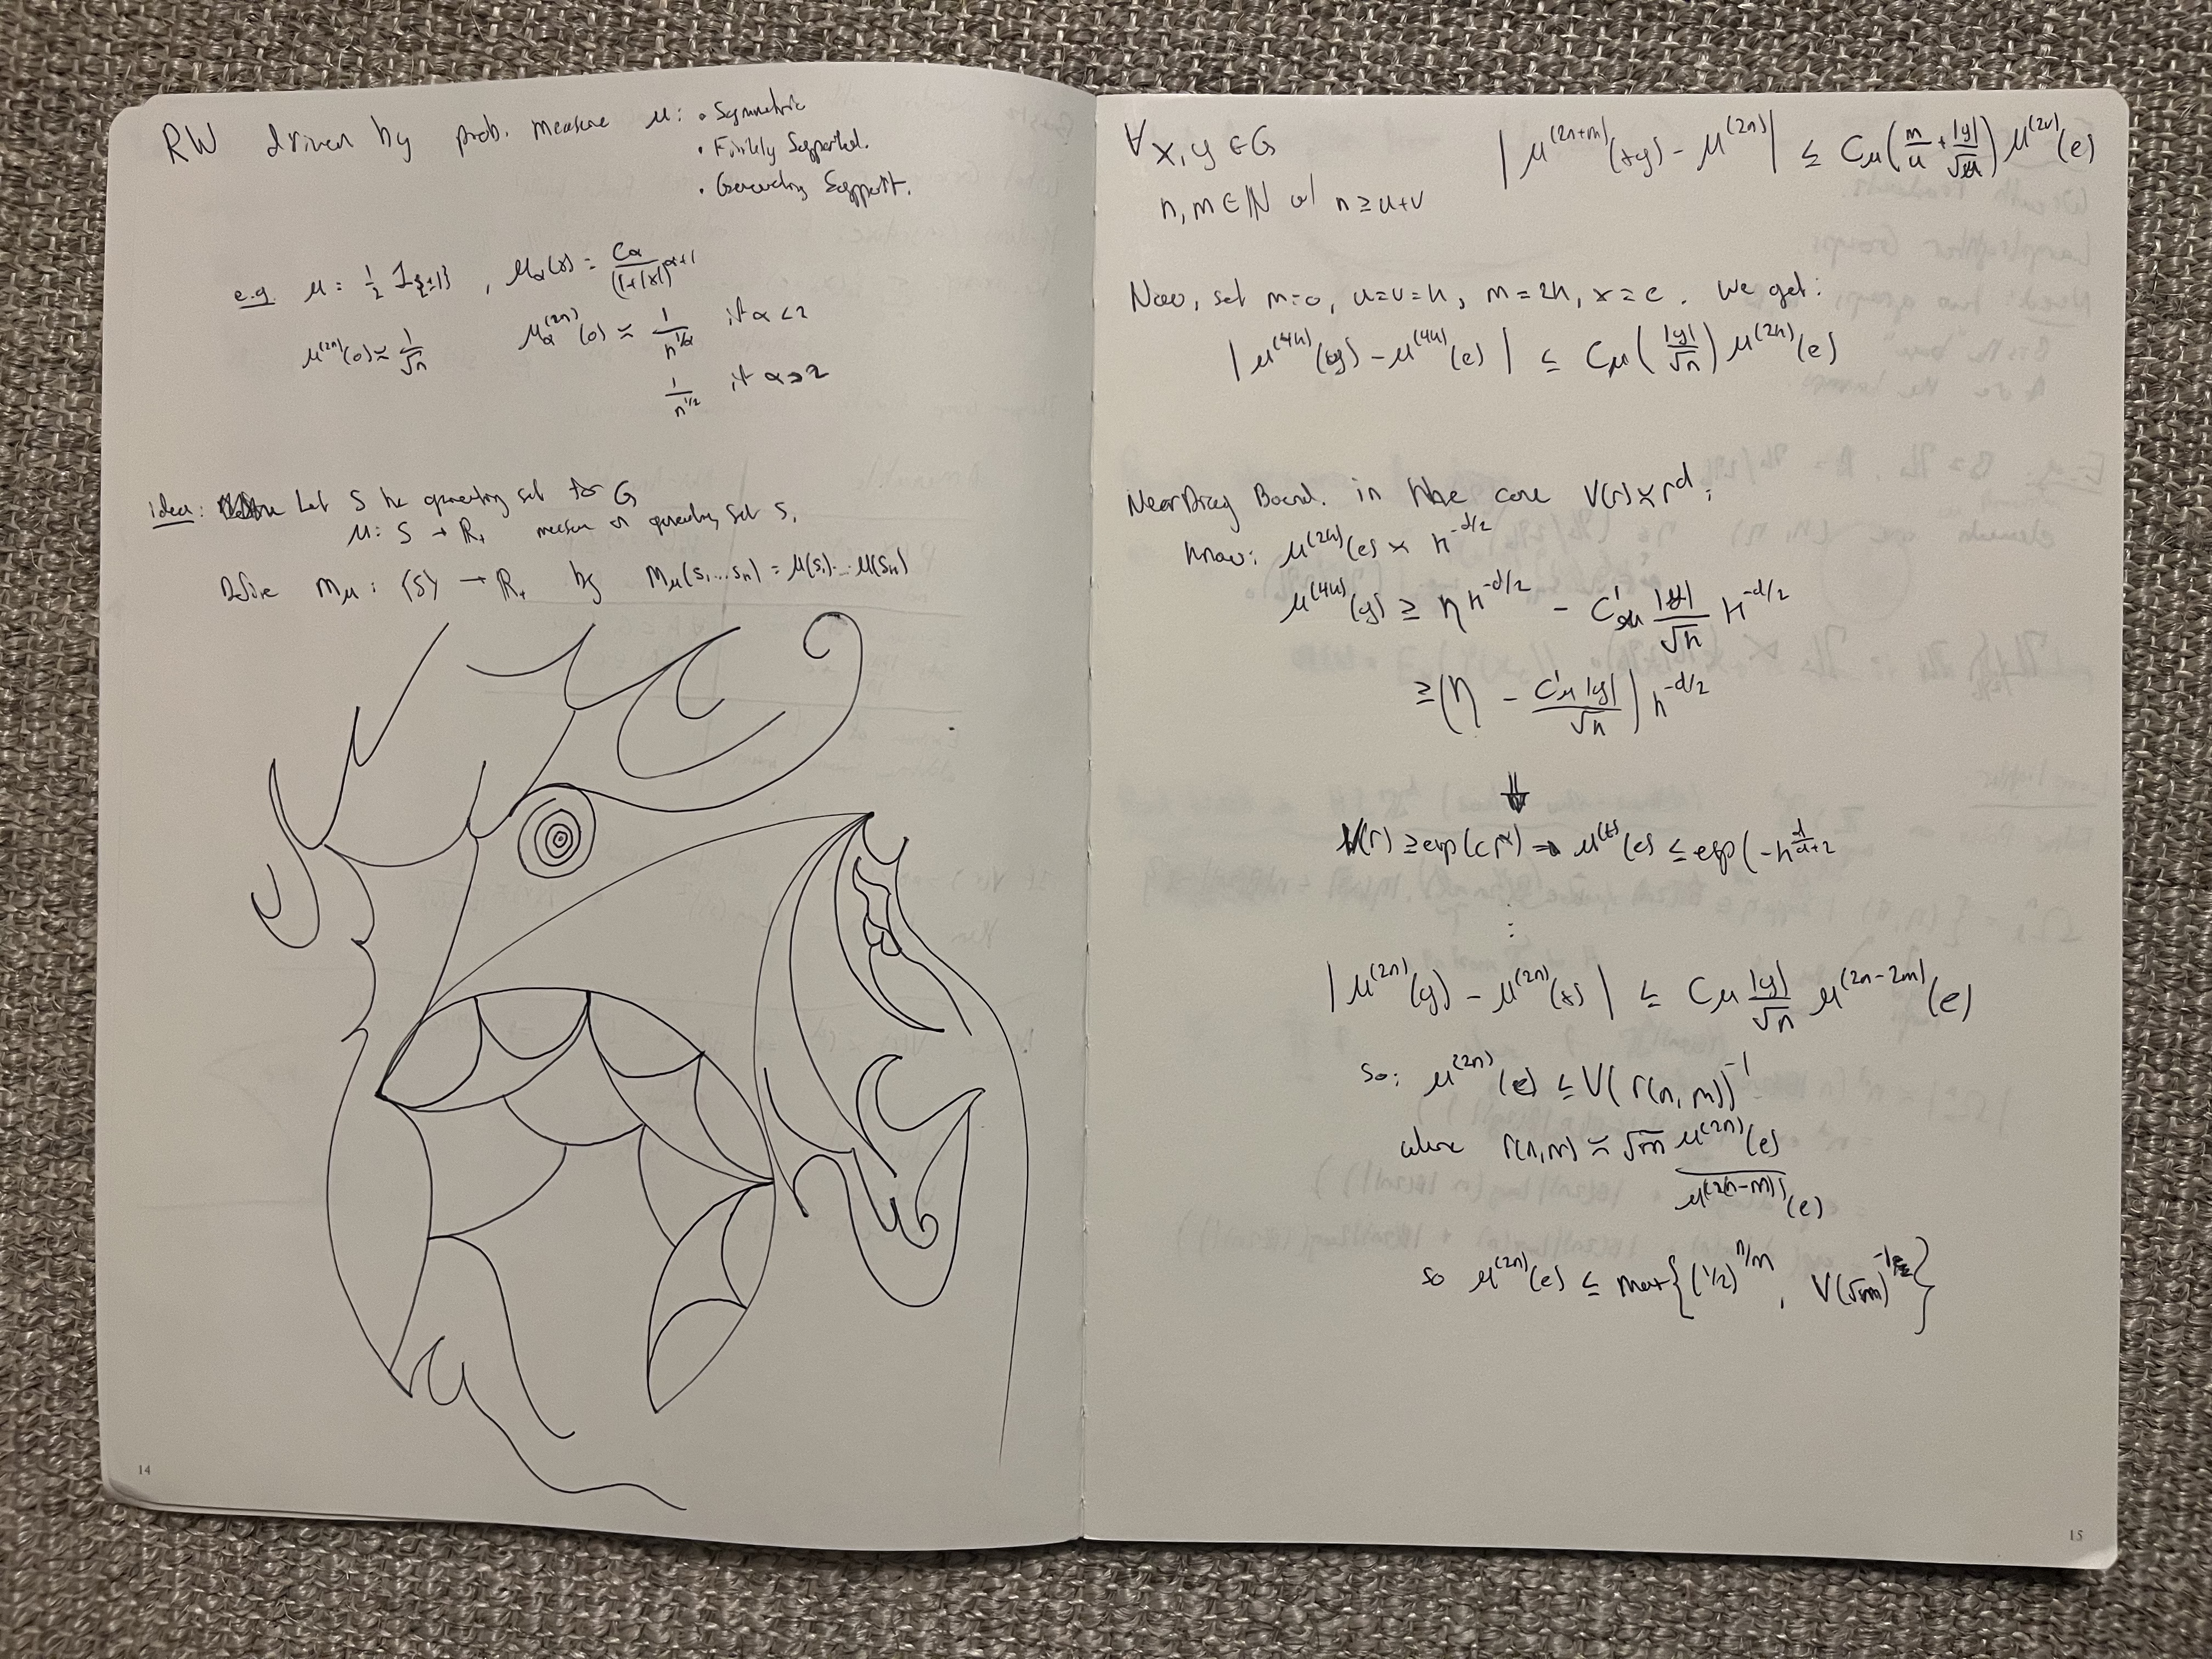 RW driven by prob. measure μ: • Symmetric
• Finitely Supported.
• Generating Support.
e.g. μ = 1/2 1_{±1} , μ_α(x) = C_α/(1+|x|)^{α+1}
μ^{(2n)}(0) ≍ 1/√n μ_α^{(2n)}(0) ≍ 1/n^{1/α} if α < 2
1/n^{1/2} if α > 2
idea: Let S be generating set for G
μ: S → R_+ measure on generating set S.
Define M_μ: (S) → R_+ by M_μ(s_1...s_n) = μ(s_1)...μ(s_n)
14
∀ x,y ∈ G |μ^{(2n+m)}(xy) - μ^{(2n)}| ≤ C_μ(m/u + |y|/√u) μ^{(2v)}(e)
n,m ∈ N w/ n ≥ u+v
Now, set m=0, u=v=n, m=2n, x=e. We get:
|μ^{(4n)}(y) - μ^{(4n)}(e)| ≤ C_μ(|y|/√n) μ^{(2n)}(e)
Near Diag Bound. in the case V(r) ≍ r^d:
know: μ^{(2n)}(e) ≍ n^{-d/2}
μ^{(4n)}(y) ≥ η n^{-d/2} - C'_μ |y|/√n n^{-d/2}
≥ (η - C'_μ|y|/√n) n^{-d/2}
V(r) ≥ exp(cr^α) ⇒ μ^{(t)}(e) ≤ exp(-n^{α/(α+2)}
⋮
|μ^{(2n)}(y) - μ^{(2n)}(x)| ≤ C_μ |y|/√n μ^{(2n-2m)}(e)
so: μ^{(2n)}(e) ≤ V(r(n,m))^{-1}
where r(n,m) ≍ √m μ^{(2n)}(e)/μ^{(2n-m)}(e)
so μ^{(2n)}(e) ≤ max{(1/2)^{n/m}, V(√m)^{-1}}
15